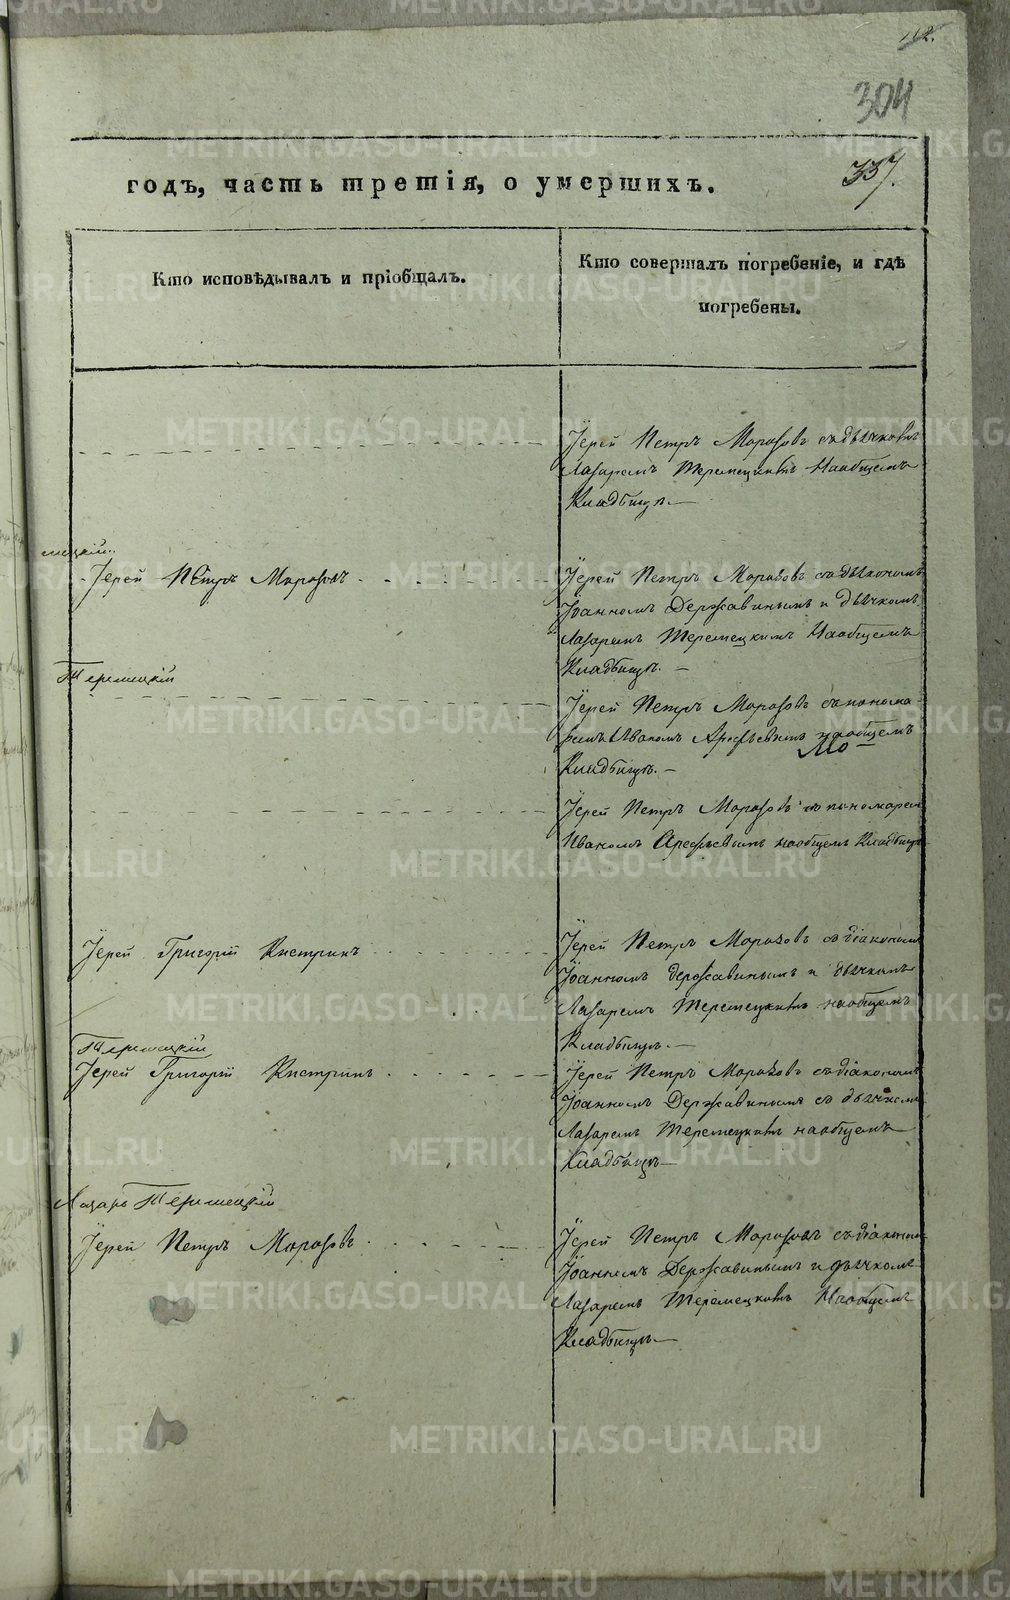 304
337.
годъ, часть третія, о умершихъ.
Кто исповѣдывалъ и пріобщалъ.
Кто совершалъ погребеніе, и гдѣ
погребены.
Іерей Петръ Морозовъ съ дьячкомъ
Лазаремъ Теремецкимъ На общемъ
Кладбищѣ.—
мецкій
Іерей Петръ Морозовъ
Іерей Петръ Морозовъ съ дьякономъ
Іоанномъ Державинымъ и дьячкомъ
Лазаремъ Теремецкимъ На общемъ
Кладбищѣ.—
Теремецкій
Іерей Петръ Морозовъ съ понома-
ремъ Иваномъ Арефьевымъ на общемъ
Кладбищѣ.—
Іерей Петръ Морозовъ съ пономарем
Иваномъ Арефьевымъ на общемъ Кладбищѣ
Іерей Григорій Кистринъ
Іерей Петръ Морозовъ съ діакономъ
Іоанномъ Державинымъ и дьячкомъ
Лазаремъ Теремецкимъ на общемъ
Кладбищѣ.—
Теремецкій
Іерей Григорій Кистринъ
Іерей Петръ Морозовъ съ діакономъ
Іоанномъ Державинымъ съ дьячкомъ
Лазаремъ Теремецкимъ на общемъ
Кладбищѣ—
Лазарь Теремецкій
Іерей Петръ Морозовъ
Іерей Петръ Морозовъ съ діакономъ
Іоанномъ Державинымъ и дьячкомъ
Лазаремъ Теремецкимъ На общемъ
Кладбищѣ—
METRIKI.GASO-URAL.RU